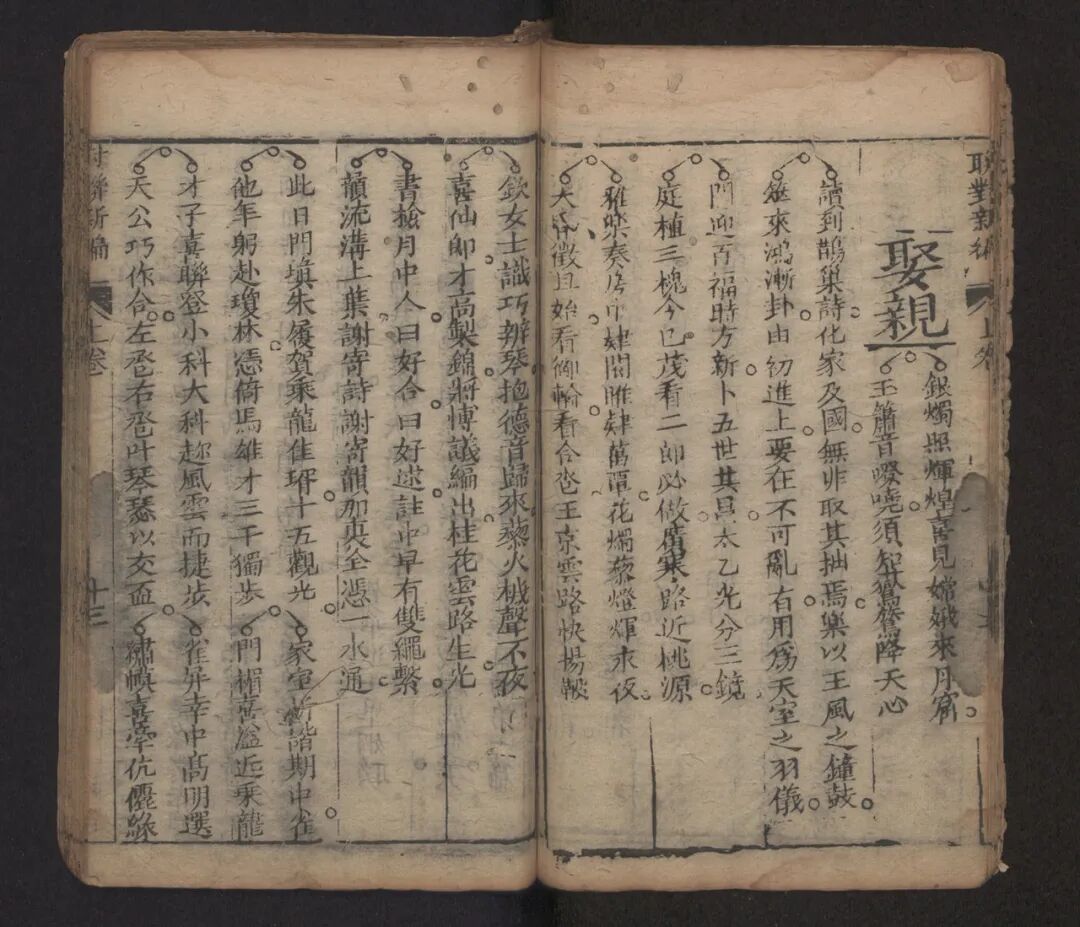 聯對新編
上卷
娶親
銀燭照輝煌喜見嫦娥來月窟
玉簫音嘹喨須知鸞鳳降天心
讀到鵲巢詩化家及國無非取其拙焉樂以王風之鐘鼓
筮來鴻漸卦由初進上要在不可亂有用為天室之羽儀
門迎百福時方新卜五世其昌太乙光分三鏡
庭種三槐今已茂看二郎必做廣寒路近桃源
雅樂奏房中肆關雎肆葛覃花燭藜燈輝永夜
大昏徵且始看御輪看合卺玉京雲路快揚鞍
欽女士識巧辨琴抱德音歸來藜火機聲不夜
喜仙郎才高製錦將博議編出桂花雲路生光
書檢月中今曰好合曰好逑註中早有雙繩繫
韻流溝上葉謝寄詩謝寄韻加與全憑一水通
此日門填朱履賀乘龍佳婿十五觀光
他年躬赴瓊林憑倚馬雄才三千獨步
家室新諧期中雀
門楣喜溢近乘龍
才子喜聯登小科大科趁風雲而捷步
天公巧作合左卺右卺叶琴瑟以交杯
雀屏幸中高明選
繡幙喜牽伉儷緣
對聯新編
上卷
十三